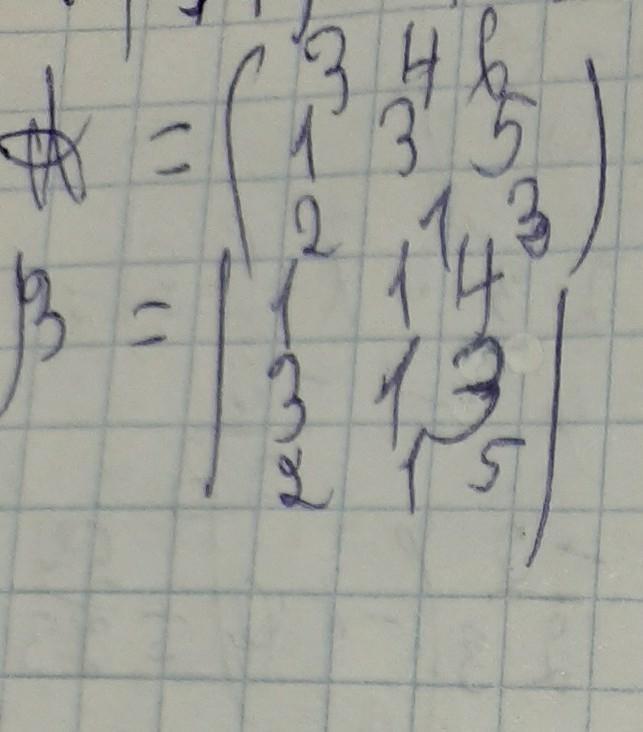 A = ( 3 4 6
1 3 5
2 1 3 )
B = | 1 1 4
3 1 3
2 1 5 |